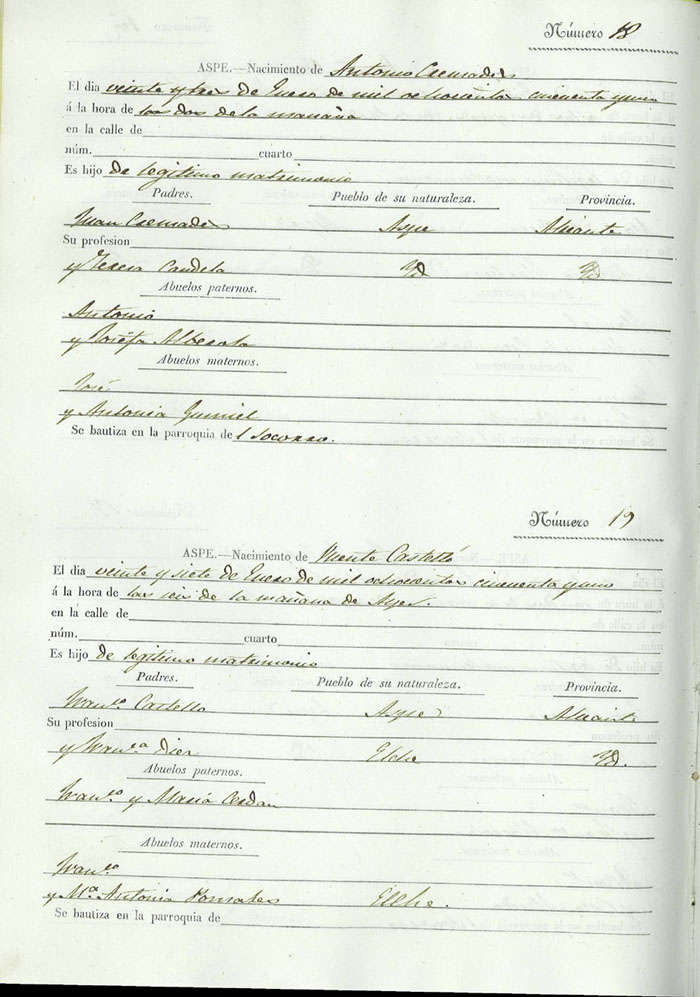 Número 18
ASPE.—Nacimiento de Antonio Cremades
El dia veinte y tres de Enero de mil ochocientos cincuenta y uno
á la hora de las dos de la mañana
en la calle de
núm. cuarto
Es hijo de legitimo matrimonio
Padres. Pueblo de su naturaleza. Provincia.
Juan Cremades Aspe Alicante
Su profesion
y Teresa Candela Yd Yd
Abuelos paternos.
Antonio
y Josefa Alberola
Abuelos maternos.
José
y Antonia
Se bautiza en la parroquia del Socorro.
Número 19
ASPE.—Nacimiento de Vicente Castelló
El dia veinte y siete de Enero de mil ochocientos cincuenta y uno
á la hora de las seis de la mañana de Ayer.
en la calle de
núm. cuarto
Es hijo de legitimo matrimonio
Padres. Pueblo de su naturaleza. Provincia.
Franco. Castello Aspe Alicante
Su profesion
y Franca. Diez Elche Yd.
Abuelos paternos.
Franco. y Maria Cerdan
Abuelos maternos.
Franco.
y Ma. Antonia Gonsales Elche.
Se bautiza en la parroquia de